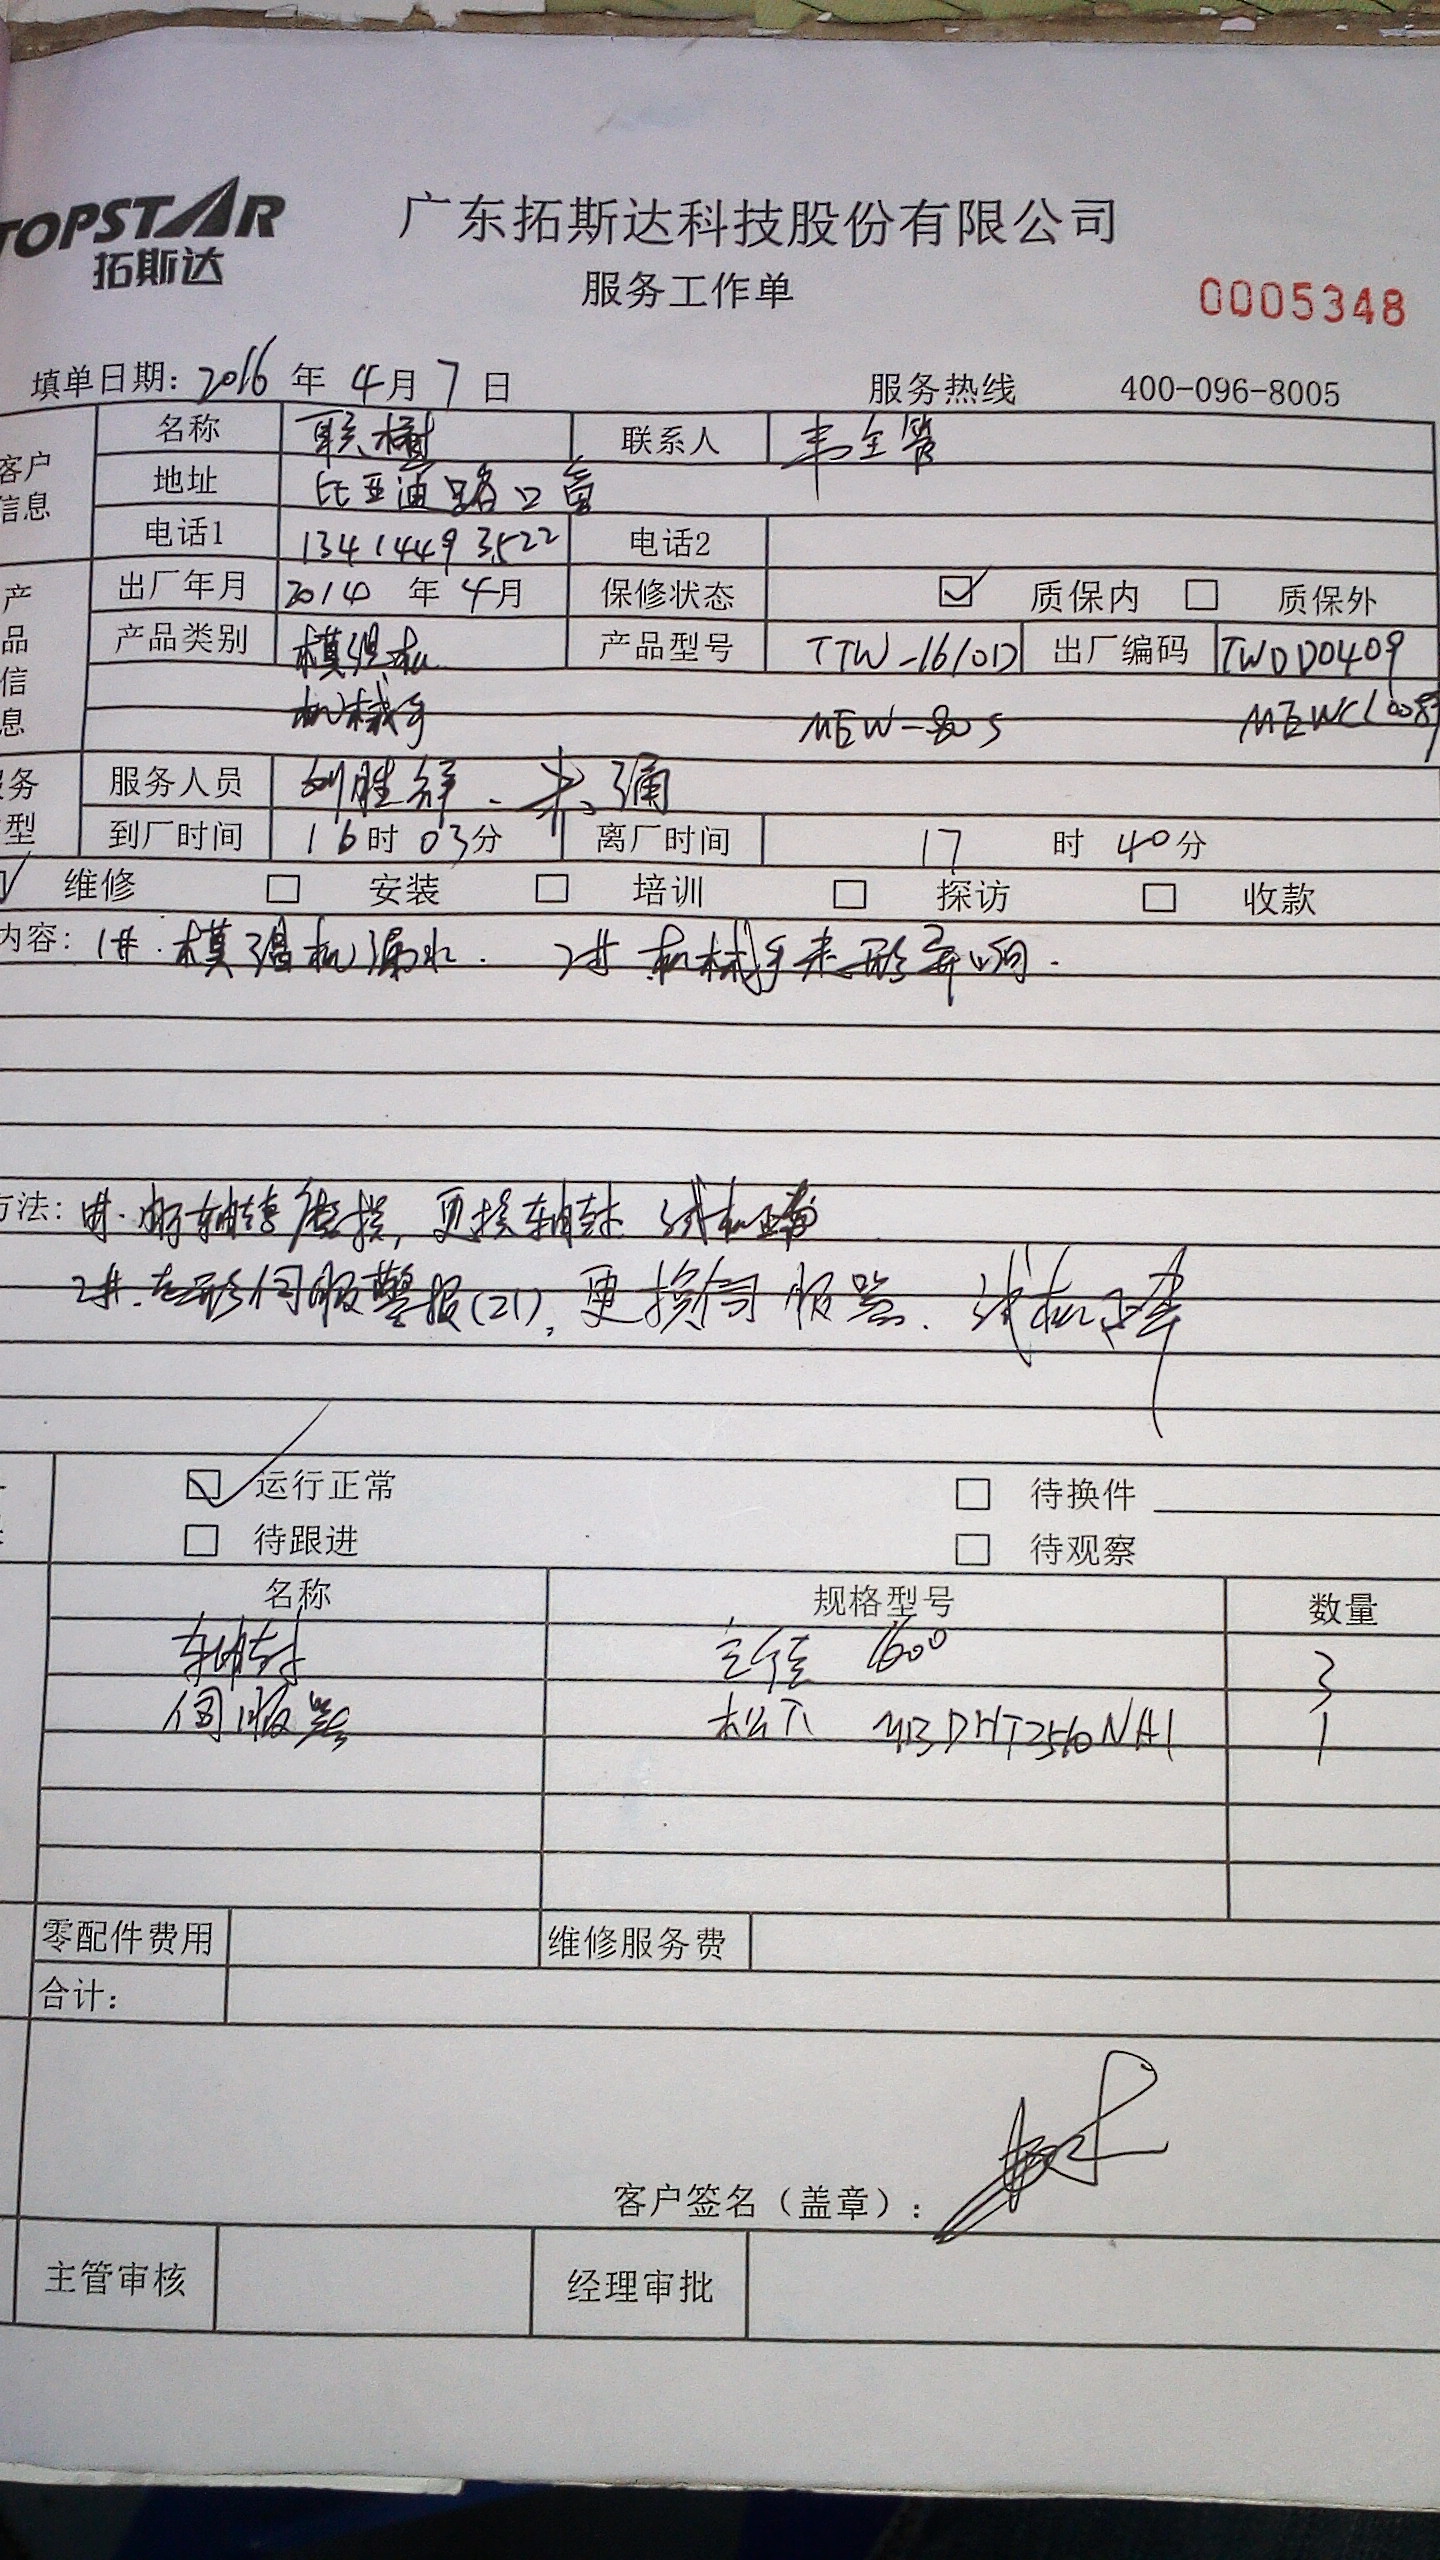 TOPSTAR
拓斯达
广东拓斯达科技股份有限公司
服务工作单
0005348
填单日期: 2016 年 4月 7 日 服务热线 400-096-8005
客户信息 名称 联樹 联系人 韦主管
地址 比亚迪路口
电话1 13414493522 电话2
产品信息 出厂年月 2014 年 4月 保修状态 ☑ 质保内 □ 质保外
产品类别 模温机 产品型号 TTW-1610D 出厂编码 TWDD0409
机械手 MEW-80S MEWCL008
务型 服务人员 刘胜祥、朱涌
到厂时间 16时 03分 离厂时间 17 时 40分
☑ 维修 □ 安装 □ 培训 □ 探访 □ 收款
内容: 1#. 模温机漏水. 2# 机械手 异响.
方法: 1#. 轴封磨损, 更换轴封 试机正常
2#. 伺服警报(21), 更换伺服器. 试机正常
☑ 运行正常 □ 待换件
□ 待跟进 □ 待观察
名称 规格型号 数量
轴封 1600 3
伺服器 松下 MBDHT2510NA1 1
零配件费用 维修服务费
合计:
客户签名(盖章):
主管审核 经理审批